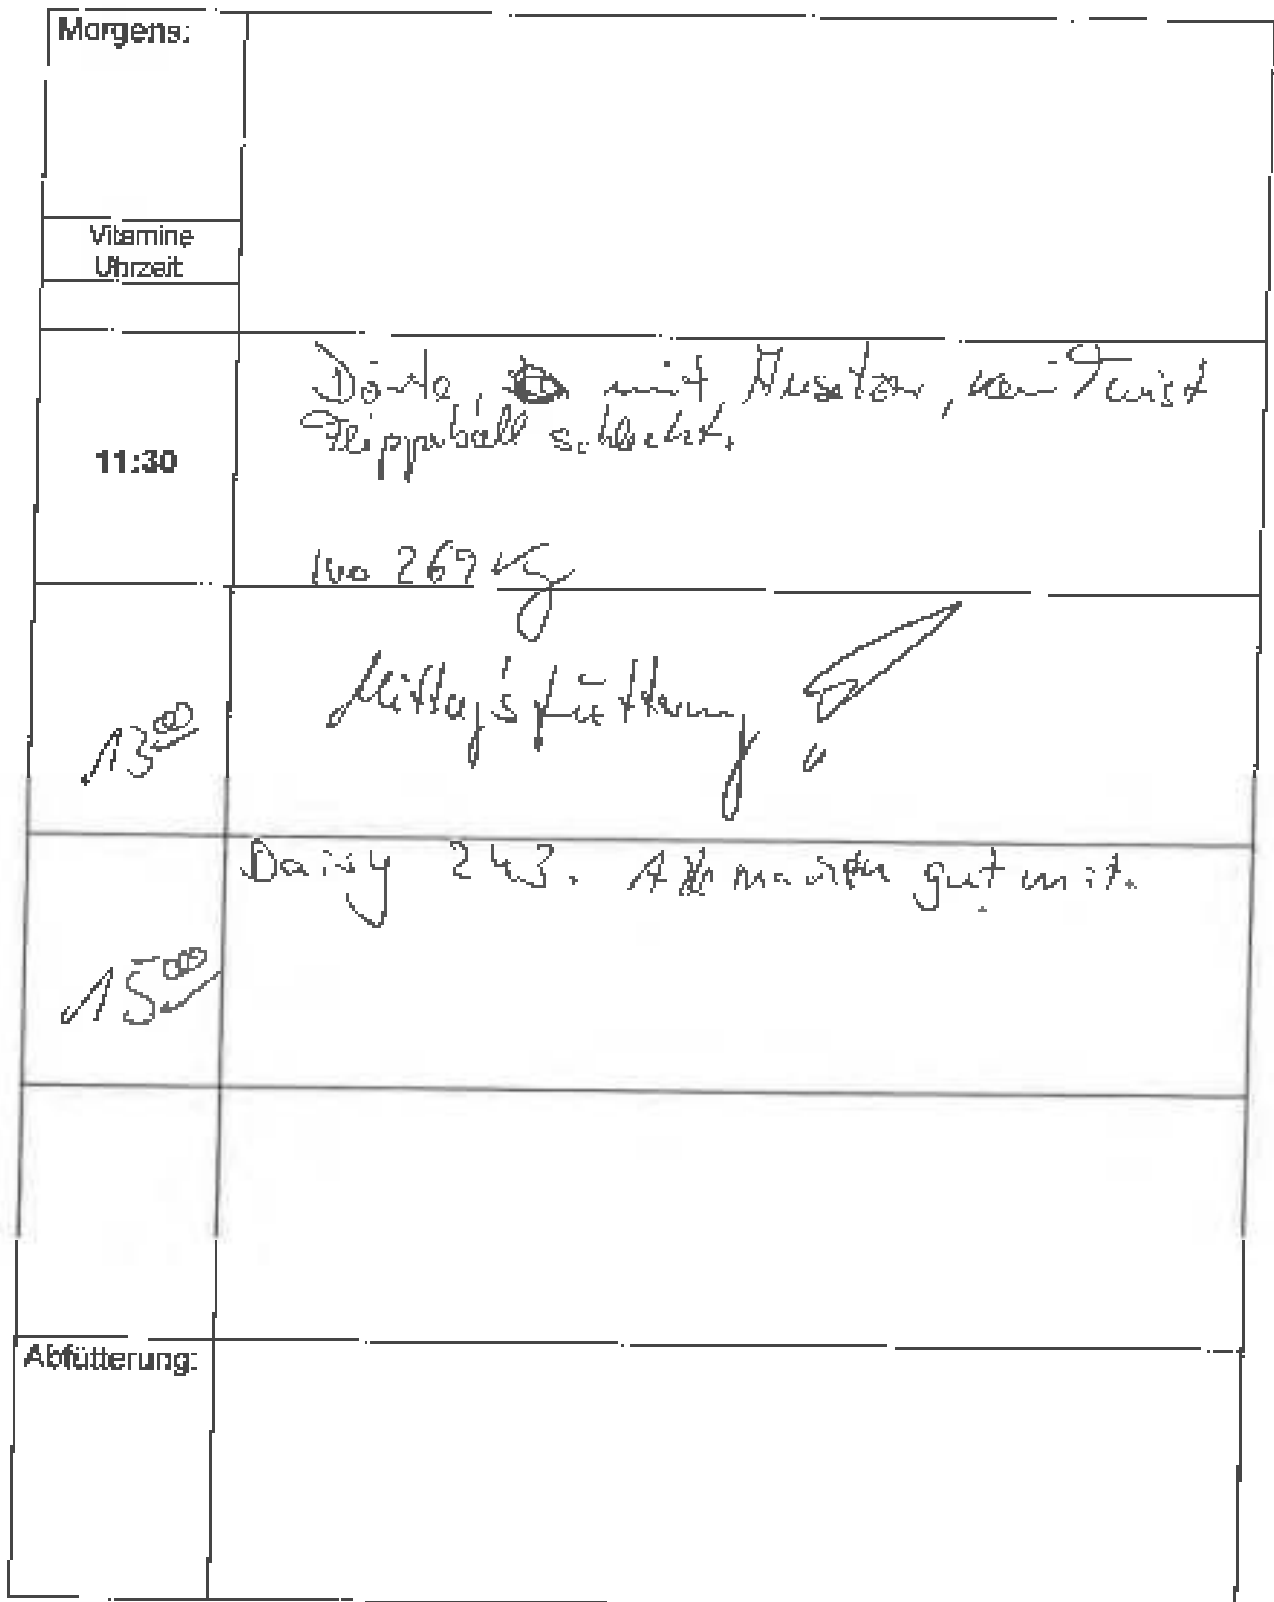 Morgens:
Vitamine
Uhrzeit
Dörte, mit Ausetzer, kein Twist
Flipperball schlecht.
11:30
Ivo 269 kg
Mittagsfütterung !
13⁰⁰
Daisy 243. Alle machten gut mit.
15⁰⁰
Abfütterung: